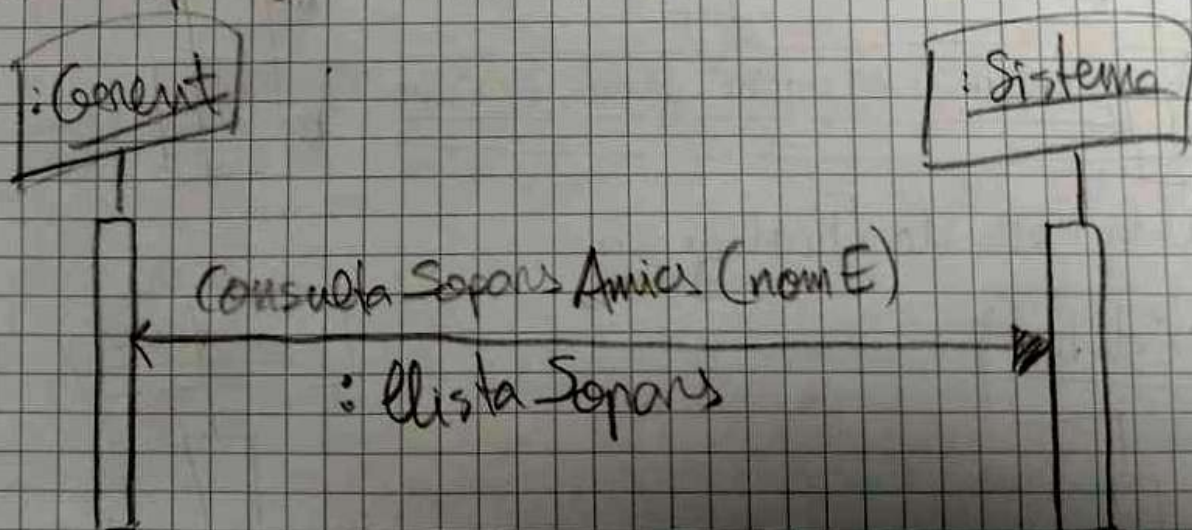 :Gerent
:Sistema
Consulta Sopars Amics (nomE)
: llista Sopars